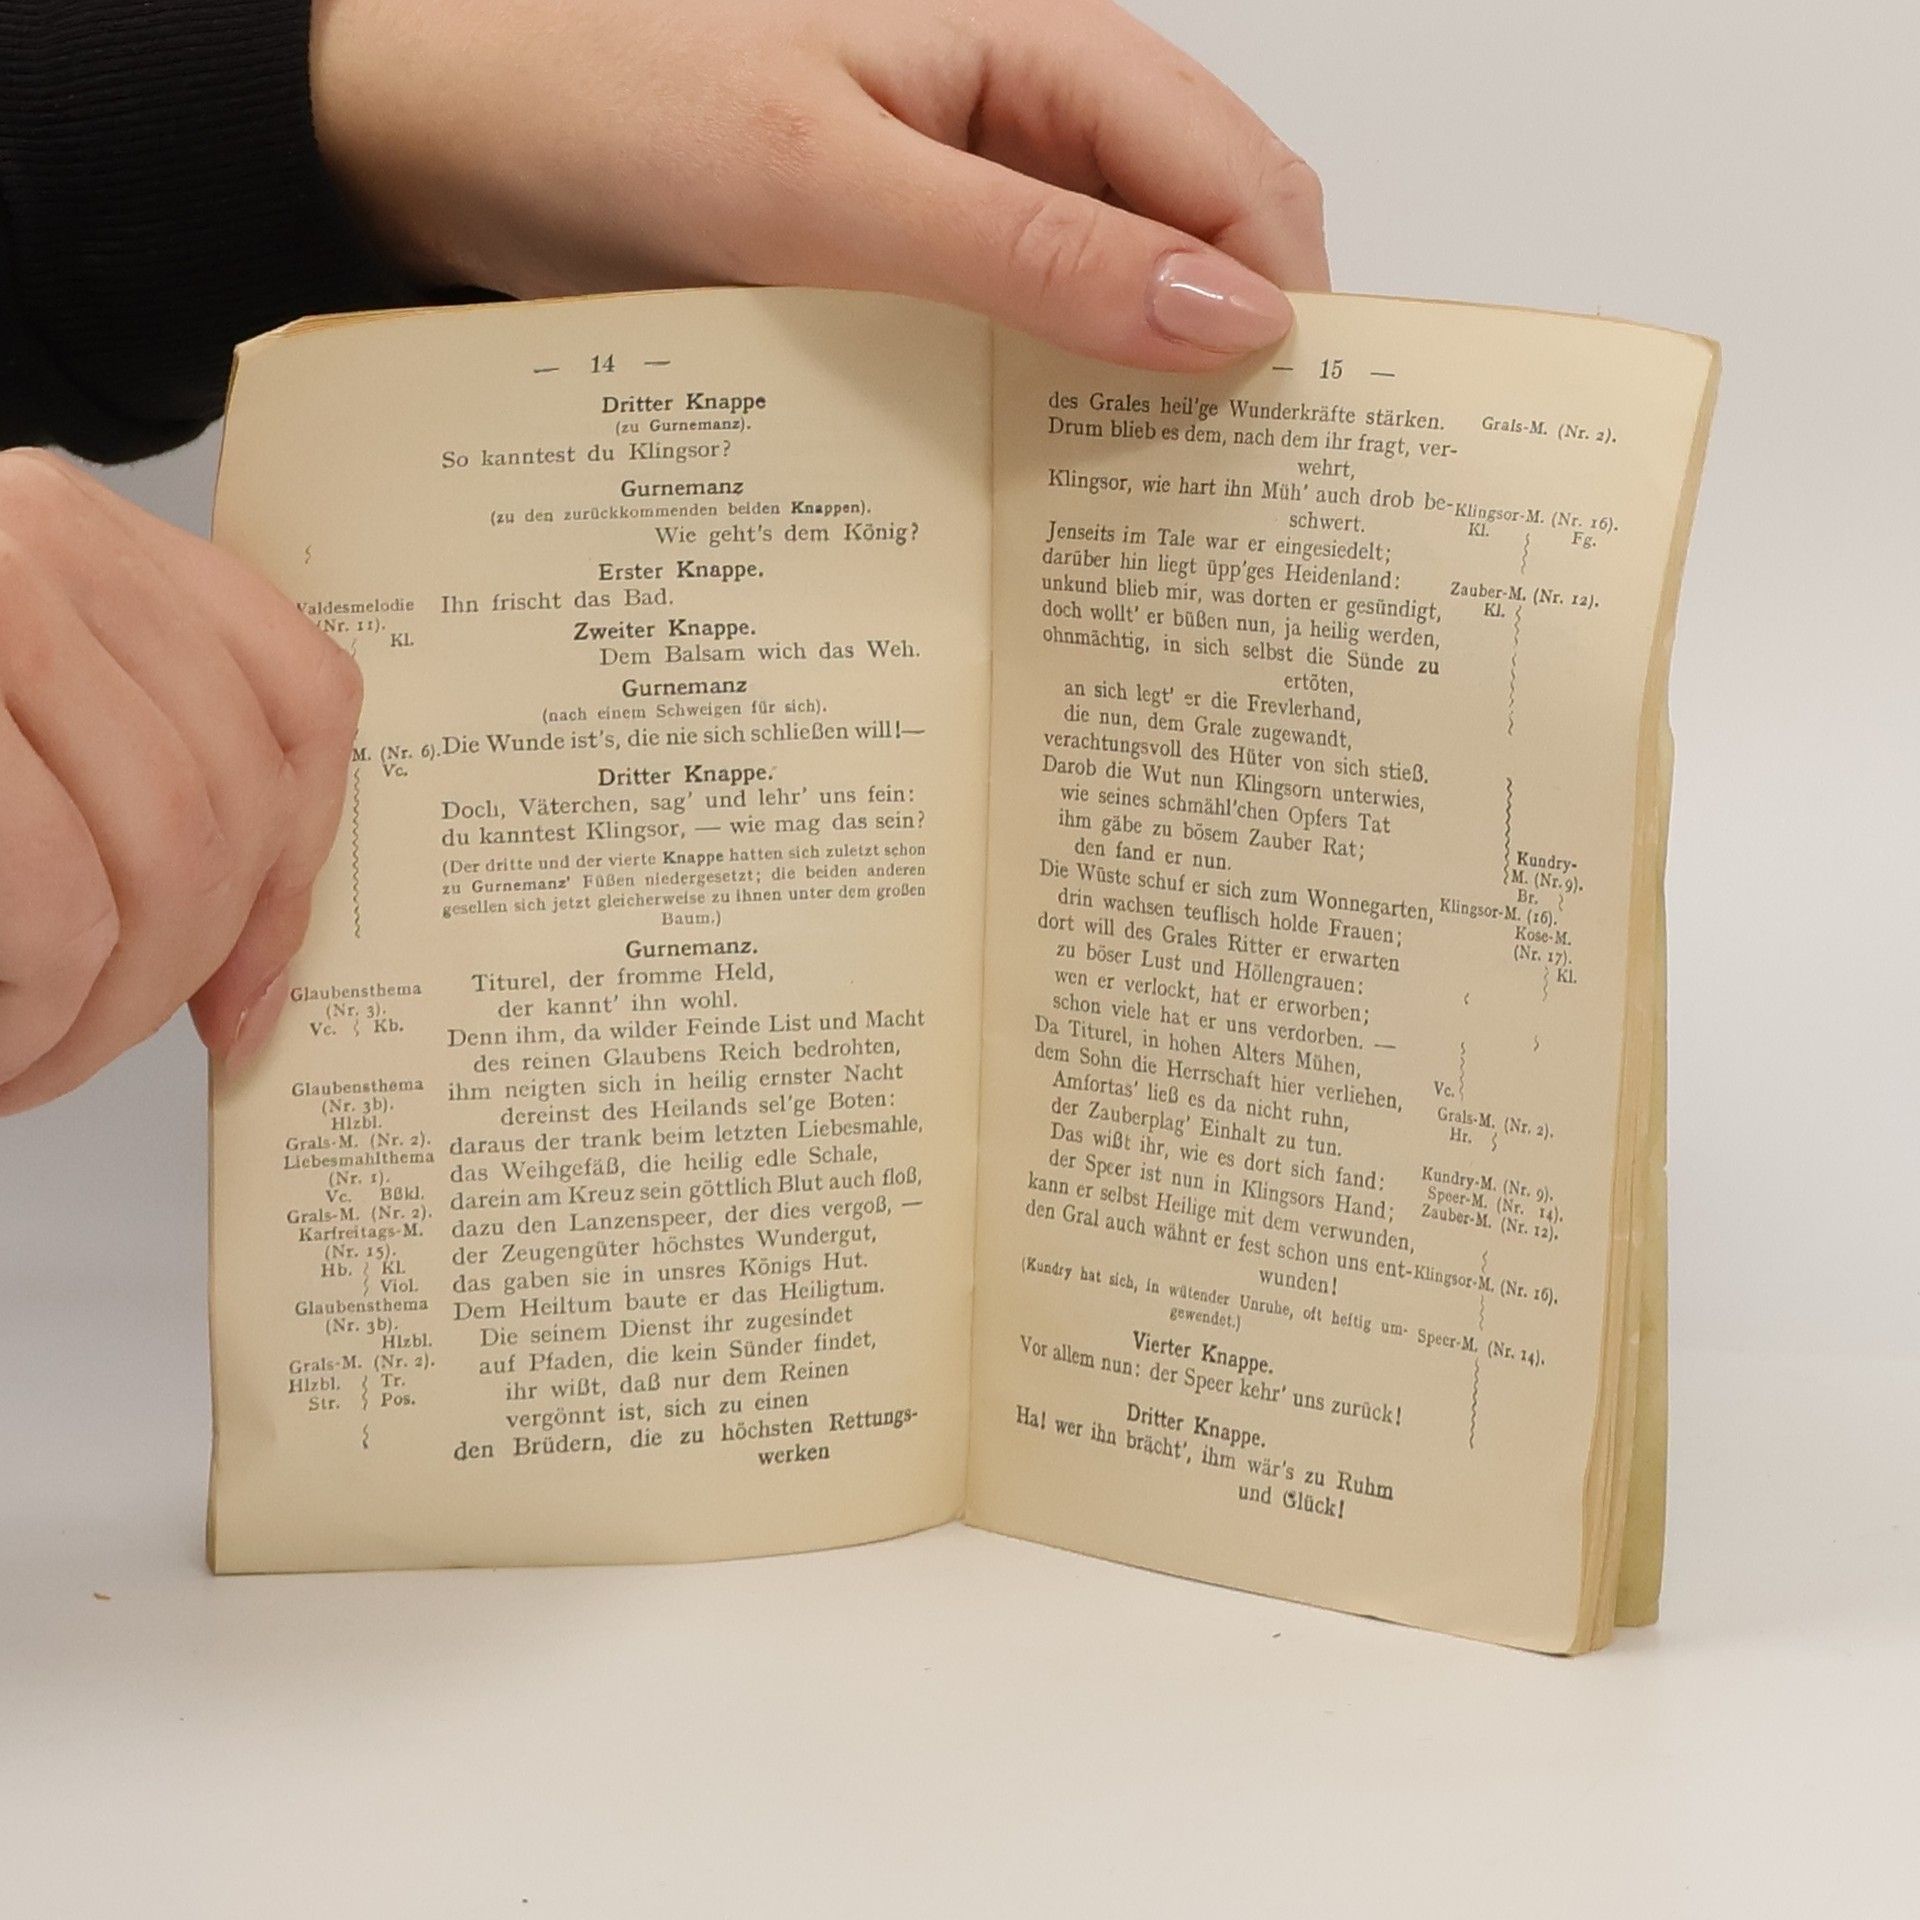 — 14 —
Dritter Knappe
(zu Gurnemanz).
So kanntest du Klingsor?
Gurnemanz
(zu den zurückkommenden beiden Knappen).
Wie geht's dem König?
Erster Knappe.
Waldesmelodie
(Nr. 11).
Kl.
Ihn frischt das Bad.
Zweiter Knappe.
Dem Balsam wich das Weh.
Gurnemanz
(nach einem Schweigen für sich).
M. (Nr. 6).
Vc.
Die Wunde ist's, die nie sich schließen will!—
Dritter Knappe.
Doch, Väterchen, sag' und lehr' uns fein:
du kanntest Klingsor, — wie mag das sein?
(Der dritte und der vierte Knappe hatten sich zuletzt schon
zu Gurnemanz' Füßen niedergesetzt; die beiden anderen
gesellen sich jetzt gleicherweise zu ihnen unter dem großen
Baum.)
Gurnemanz.
Titurel, der fromme Held,
der kannt' ihn wohl.
Denn ihm, da wilder Feinde List und Macht
des reinen Glaubens Reich bedrohten,
ihm neigten sich in heilig ernster Nacht
dereinst des Heilands sel'ge Boten:
daraus der trank beim letzten Liebesmahle,
das Weihgefäß, die heilig edle Schale,
darein am Kreuz sein göttlich Blut auch floß,
dazu den Lanzenspeer, der dies vergoß, —
der Zeugengüter höchstes Wundergut,
das gaben sie in unsres Königs Hut.
Dem Heiltum baute er das Heiligtum.
Die seinem Dienst ihr zugesindet
auf Pfaden, die kein Sünder findet,
ihr wißt, daß nur dem Reinen
vergönnt ist, sich zu einen
den Brüdern, die zu höchsten Rettungs-
werken
Glaubensthema
(Nr. 3).
Vc. Kb.
Glaubensthema
(Nr. 3b).
Hlzbl.
Grals-M. (Nr. 2).
Liebesmahlthema
(Nr. 1).
Vc. Bßkl.
Grals-M. (Nr. 2).
Karfreitags-M.
(Nr. 15).
Hb. Kl.
Viol.
Glaubensthema
(Nr. 3b).
Hlzbl.
Grals-M. (Nr. 2).
Hlzbl. Tr.
Str. Pos.
— 15 —
des Grales heil'ge Wunderkräfte stärken.
Drum blieb es dem, nach dem ihr fragt, ver-
wehrt,
Klingsor, wie hart ihn Müh' auch drob be-
schwert.
Jenseits im Tale war er eingesiedelt;
darüber hin liegt üpp'ges Heidenland:
unkund blieb mir, was dorten er gesündigt,
doch wollt' er büßen nun, ja heilig werden,
ohnmächtig, in sich selbst die Sünde zu
ertöten,
an sich legt' er die Frevlerhand,
die nun, dem Grale zugewandt,
verachtungsvoll des Hüter von sich stieß.
Darob die Wut nun Klingsorn unterwies,
wie seines schmähl'chen Opfers Tat
ihm gäbe zu bösem Zauber Rat;
den fand er nun.
Die Wüste schuf er sich zum Wonnegarten,
drin wachsen teuflisch holde Frauen;
dort will des Grales Ritter er erwarten
zu böser Lust und Höllengrauen:
wen er verlockt, hat er erworben;
schon viele hat er uns verdorben. —
Da Titurel, in hohen Alters Mühen,
dem Sohn die Herrschaft hier verliehen,
Amfortas' ließ es da nicht ruhn,
der Zauberplag' Einhalt zu tun.
Das wißt ihr, wie es dort sich fand:
der Speer ist nun in Klingsors Hand;
kann er selbst Heilige mit dem verwunden,
den Gral auch wähnt er fest schon uns ent-
wunden!
(Kundry hat sich, in wütender Unruhe, oft heftig um-
gewendet.)
Vierter Knappe.
Vor allem nun: der Speer kehr' uns zurück!
Dritter Knappe.
Ha! wer ihn brächt', ihm wär's zu Ruhm
und Glück!
Grals-M. (Nr. 2).
Klingsor-M. (Nr. 16).
Kl. Fg.
Zauber-M. (Nr. 12).
Kl.
Kundry-
M. (Nr. 9).
Br.
Klingsor-M. (16).
Kose-M.
(Nr. 17).
Kl.
Vc.
Grals-M. (Nr. 2).
Hr.
Kundry-M. (Nr. 9).
Speer-M. (Nr. 14).
Zauber-M. (Nr. 12).
Klingsor-M. (Nr. 16).
Speer-M. (Nr. 14).